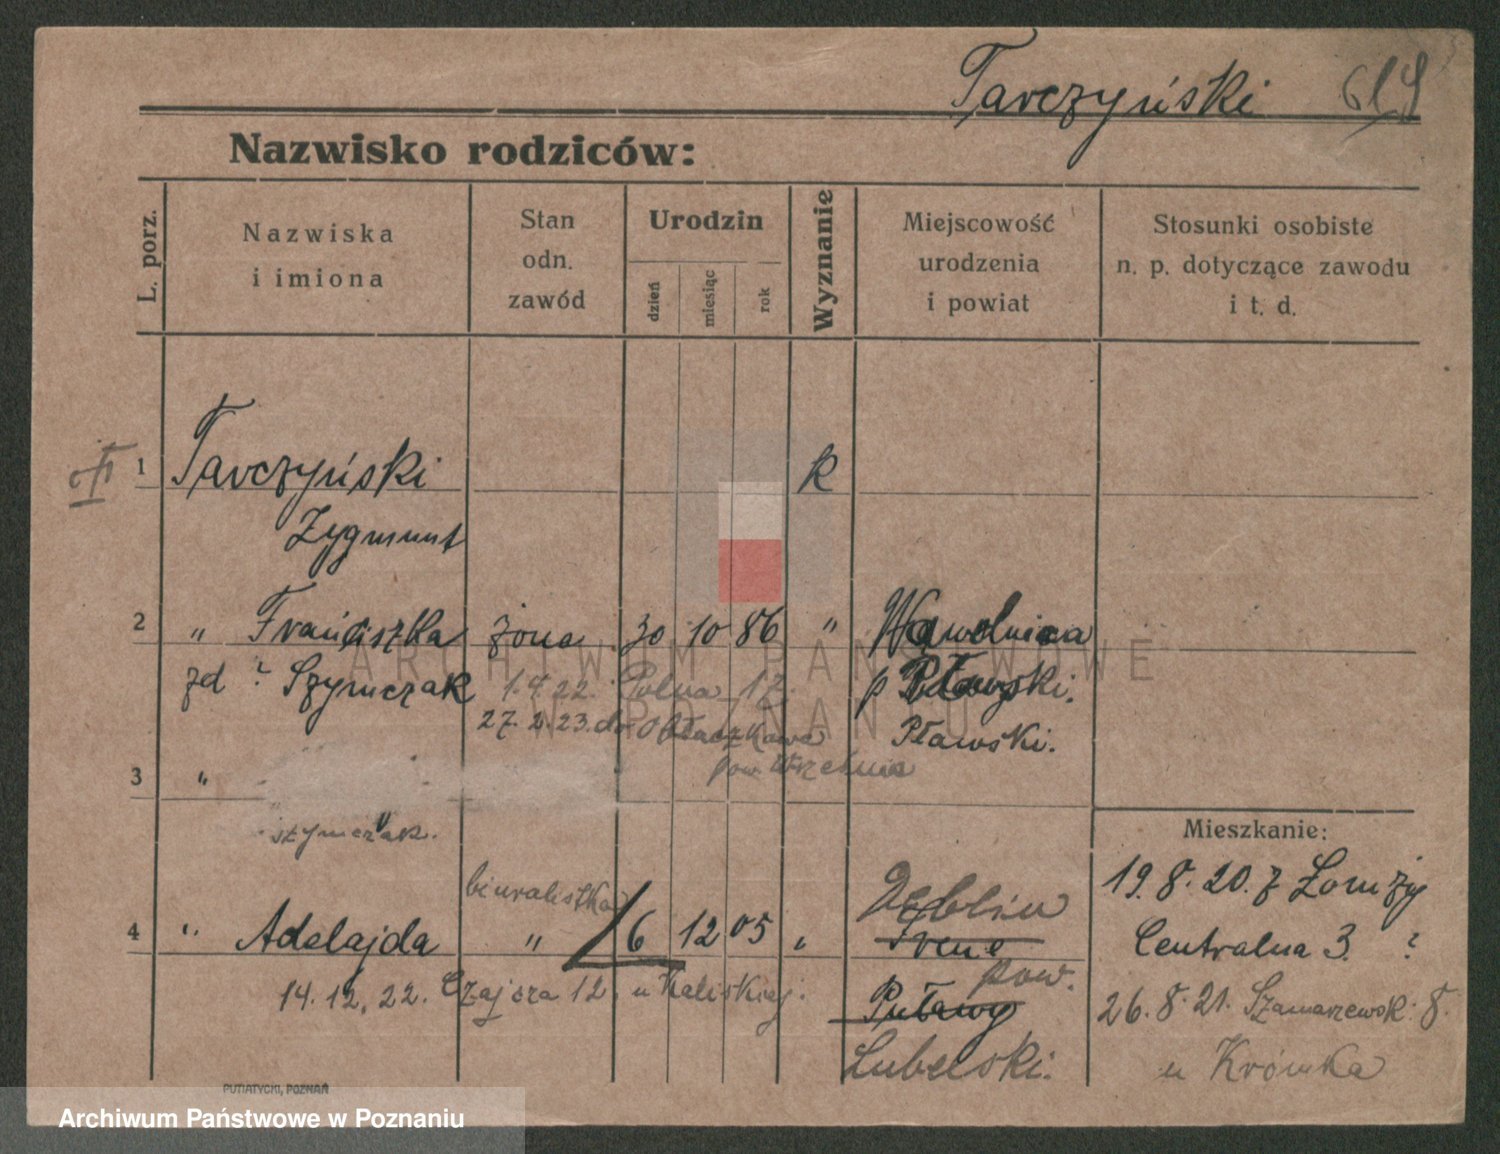 Tarczyński
Nazwisko rodziców:
L. porz.
Nazwiska
i imiona
Stan
odn.
zawód
Urodzin
dzień
miesiąc
rok
Wyznanie
Miejscowość
urodzenia
i powiat
Stosunki osobiste
n. p. dotyczące zawodu
i t. d.
1 Tarczyński k
Zygmunt
2 " Franciszka żona 30 10 86 " Wąwolnica
zd ? Szymczak
p Pławski.
1.4.22. Polna 17.
27.2.23. do Obłaczkowa
Pławski.
pow. Września
3 "
Szymczak.
Mieszkanie:
biuralistka
19.8.20. z Łomży
4 " Adelajda " 6 12 05 " Dęblin
Irene
Centralna 3. ?
pow.
14.12.22. Czajcza 12. u Kaliskiej.
Puławy
26.8.21. Szamarzewsk. 8.
Lubelski.
u Krówka
ARCHIWUM PAŃSTWOWE
W POZNANIU
PUTIATYCKI, POZNAŃ
Archiwum Państwowe w Poznaniu